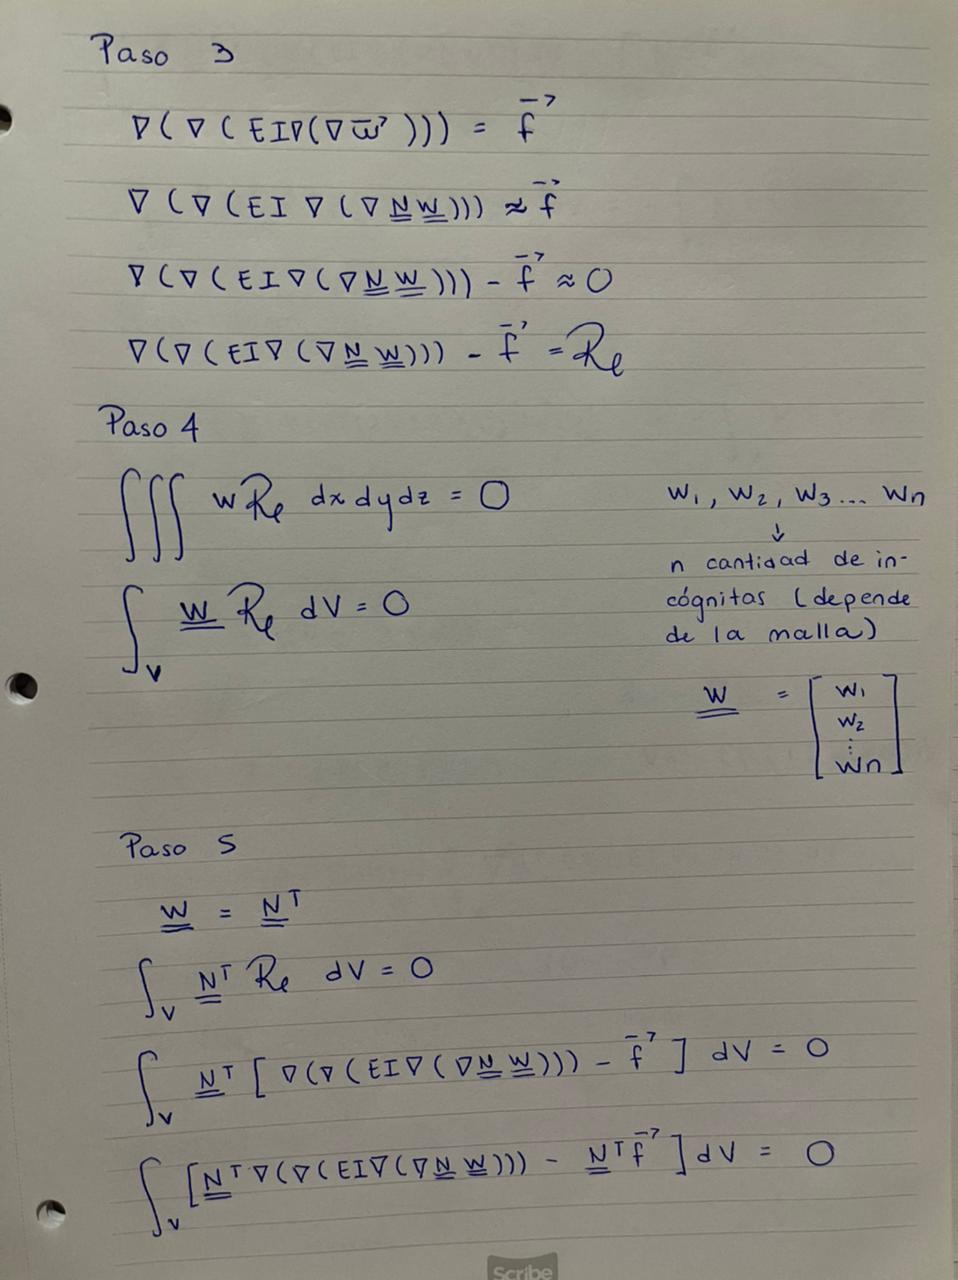 Paso 3
∇(∇(EI∇(∇w⃗))) = f⃗
∇(∇(EI∇(∇N W))) ≈ f⃗
∇(∇(EI∇(∇N W))) - f⃗ ≈ 0
∇(∇(EI∇(∇N W))) - f⃗ = Re
Paso 4
∭ w Re dxdydz = 0
∫_V W Re dV = 0
W₁, W₂, W₃... Wn
↓
n cantidad de in-
cógnitas (depende
de la malla)
W = [W₁ W₂ ⋮ Wn]
Paso 5
W = Nᵀ
∫_V Nᵀ Re dV = 0
∫_V Nᵀ [∇(∇(EI∇(∇N W))) - f⃗] dV = 0
∫_V [Nᵀ∇(∇(EI∇(∇N W))) - Nᵀf⃗] dV = 0
Scribe